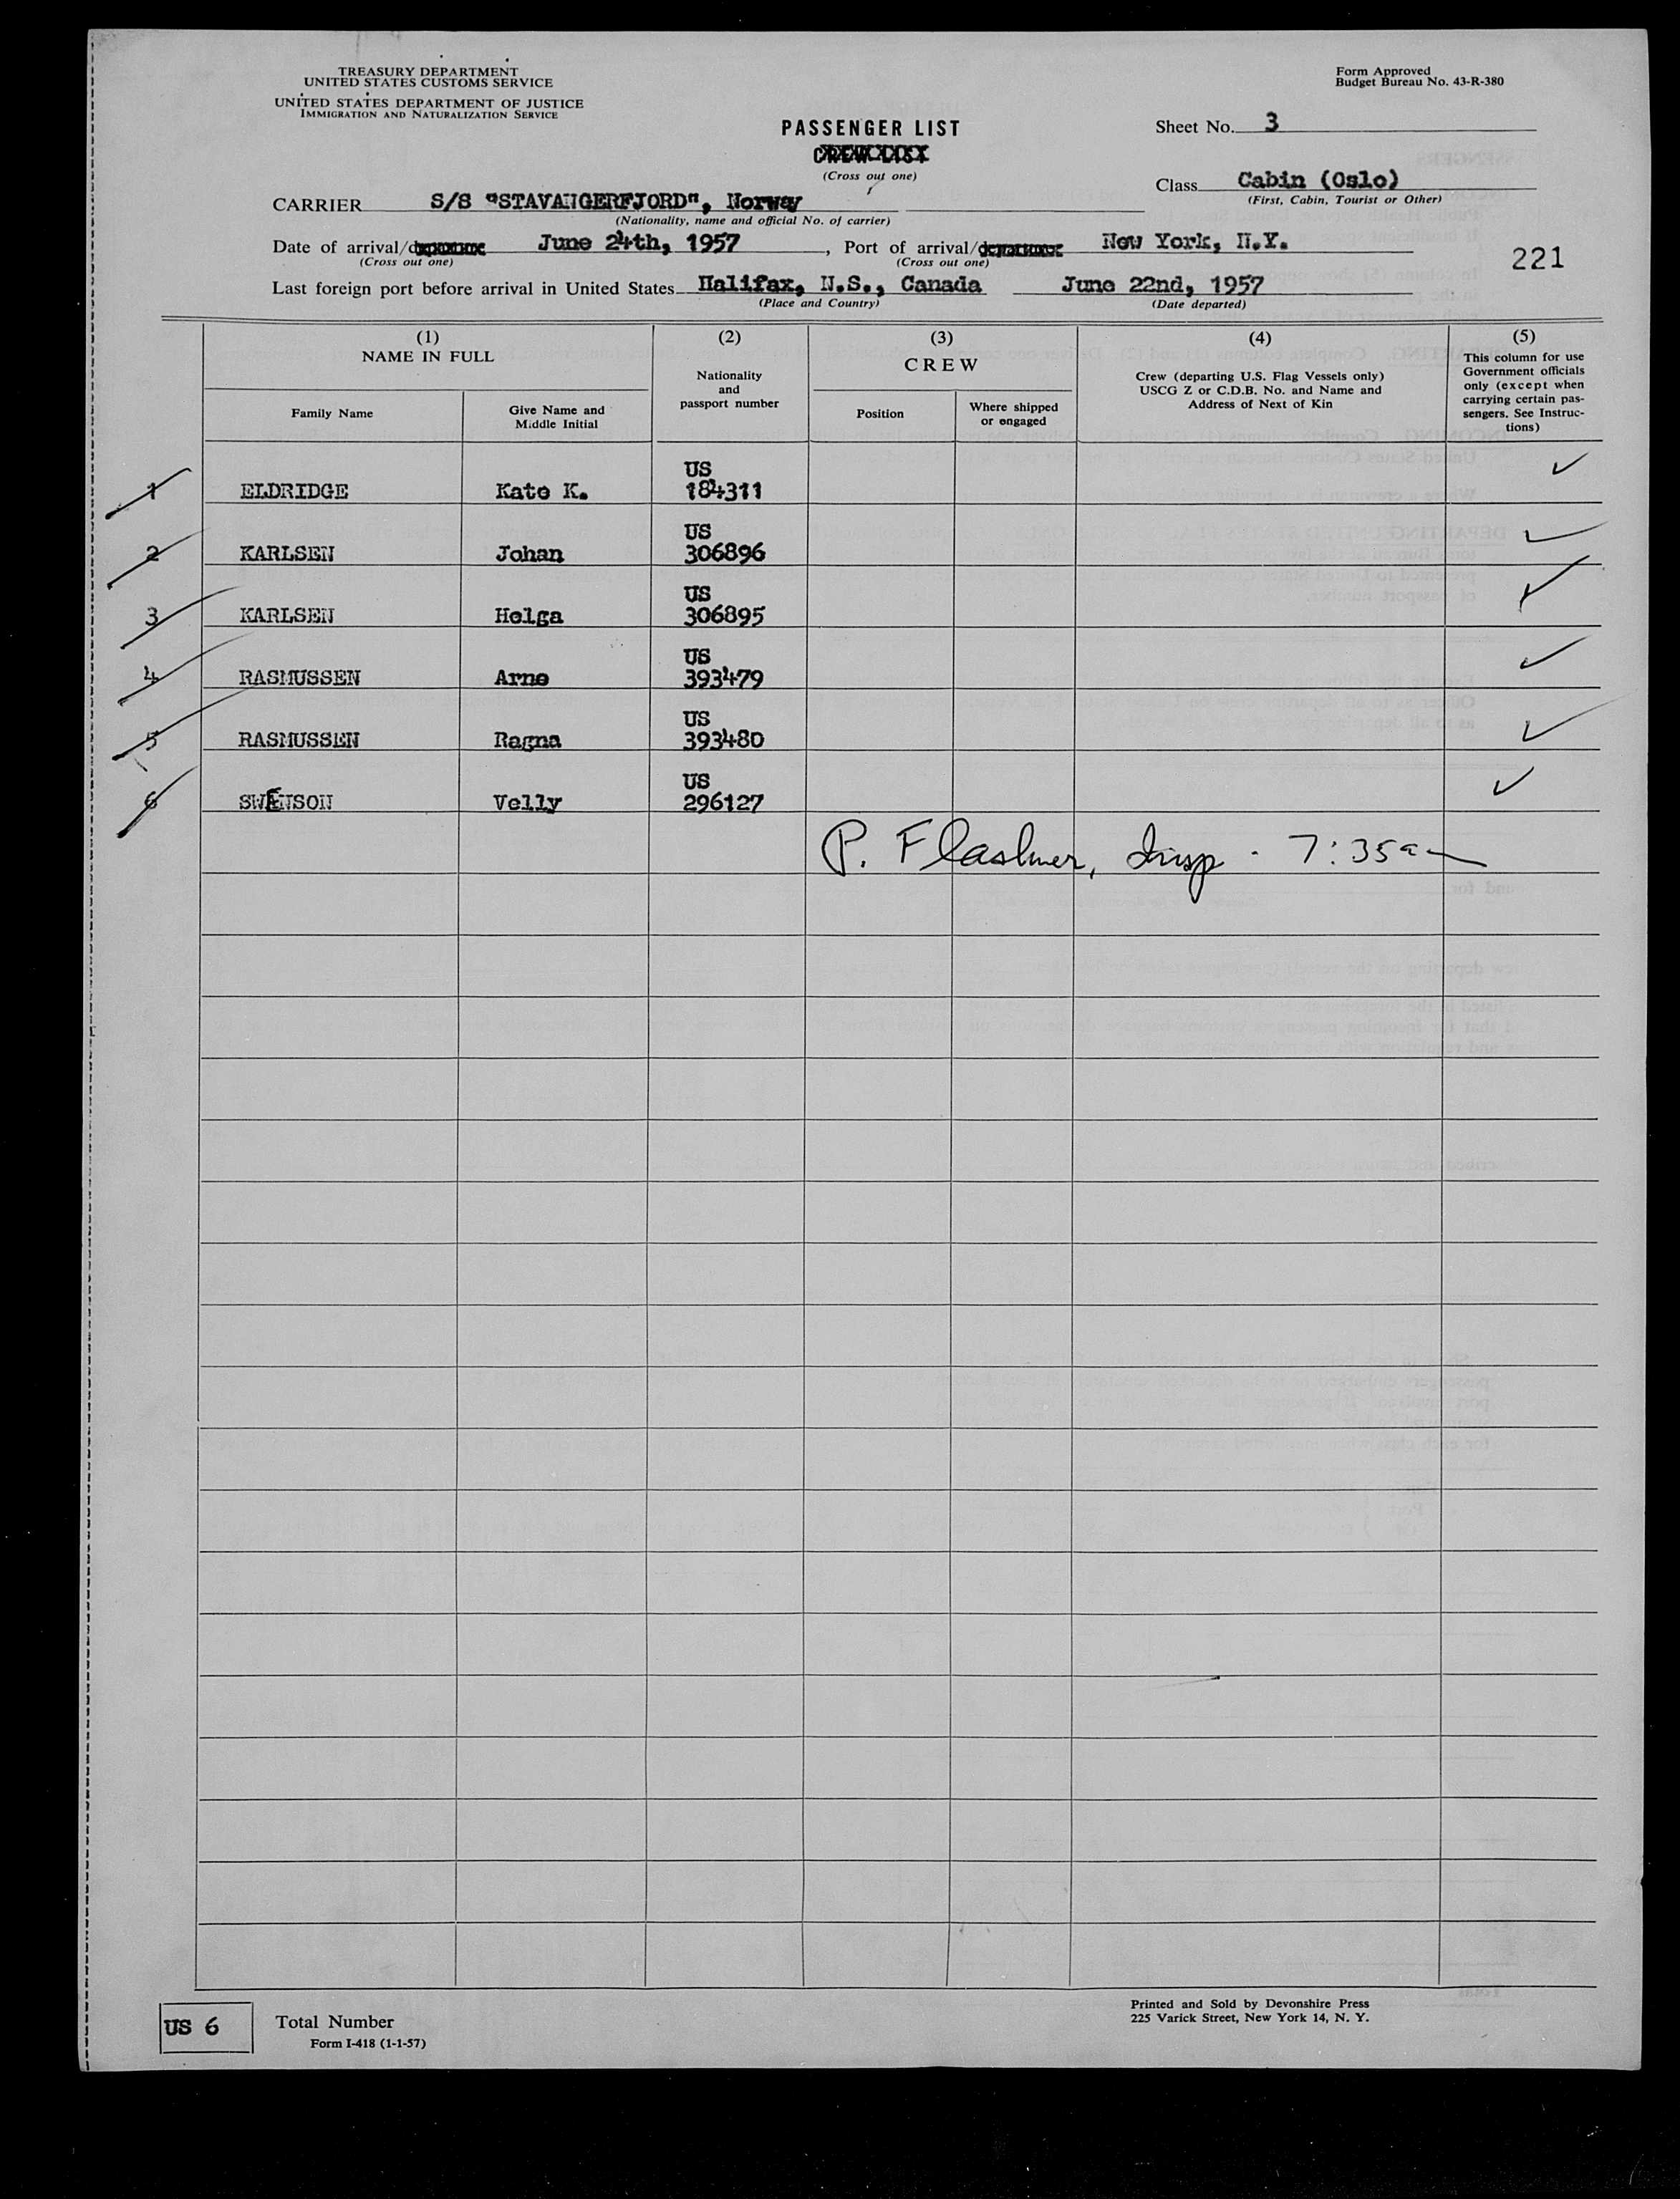 TREASURY DEPARTMENT
UNITED STATES CUSTOMS SERVICE
UNITED STATES DEPARTMENT OF JUSTICE
IMMIGRATION AND NATURALIZATION SERVICE
Form Approved
Budget Bureau No. 43-R-380
PASSENGER LIST
CREW LIST
(Cross out one)
Sheet No. 3
Class Cabin (Oslo)
(First, Cabin, Tourist or Other)
CARRIER S/S "STAVANGERFJORD", Norway
(Nationality, name and official No. of carrier)
Date of arrival/departure June 24th, 1957, Port of arrival/departure New York, N.Y.
(Cross out one) (Cross out one)
221
Last foreign port before arrival in United States Halifax, N.S., Canada June 22nd, 1957
(Place and Country) (Date departed)
(1) (2) (3) (4) (5)
NAME IN FULL
Family Name
Give Name and
Middle Initial
Nationality
and
passport number
CREW
Position
Where shipped
or engaged
Crew (departing U.S. Flag Vessels only)
USCG Z or C.D.B. No. and Name and
Address of Next of Kin
This column for use
Government officials
only (except when
carrying certain pas-
sengers. See Instruc-
tions)
US
1 ELDRIDGE Kate K. 184311
US
2 KARLSEN Johan 306896
US
3 KARLSEN Helga 306895
US
4 RASMUSSEN Arne 393479
US
5 RASMUSSEN Ragna 393480
US
6 SWENSON Velly 296127
P. Flashner, Insp - 7:35am
US 6
Total Number
Form I-418 (1-1-57)
Printed and Sold by Devonshire Press
225 Varick Street, New York 14, N. Y.